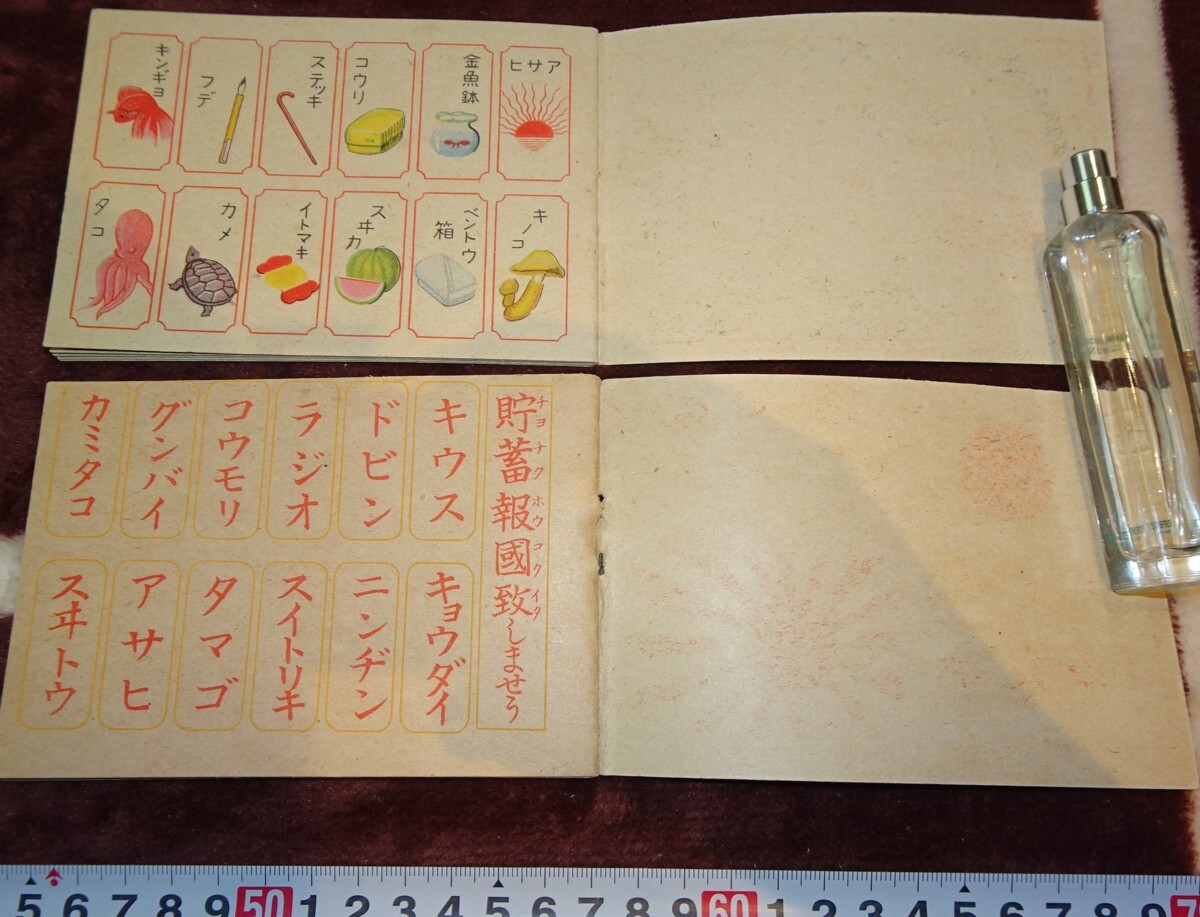 アサヒ
金魚鉢
コウリ
ステッキ
フデ
キンギョ
キノコ
ベントウ
箱
スヰカ
イトマキ
カメ
タコ
貯蓄報國致しませう
チヨチクホウコクイタ
キウス
ドビン
ラジオ
コウモリ
グンバイ
カミタコ
キョウダイ
ニンヂン
スイトリキ
タマゴ
アサヒ
スヰトウ
5 6 7 8 9 50 1 2 3 4 5 6 7 8 9 60 1 2 3 4 5 6 7 8 9 7